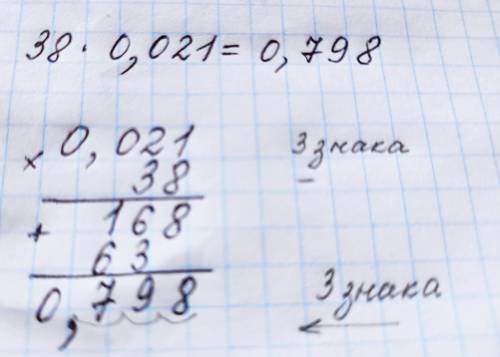 38 · 0,021 = 0,798
× 0,021 3 знака
38
+ 168
63
0,798 3 знака